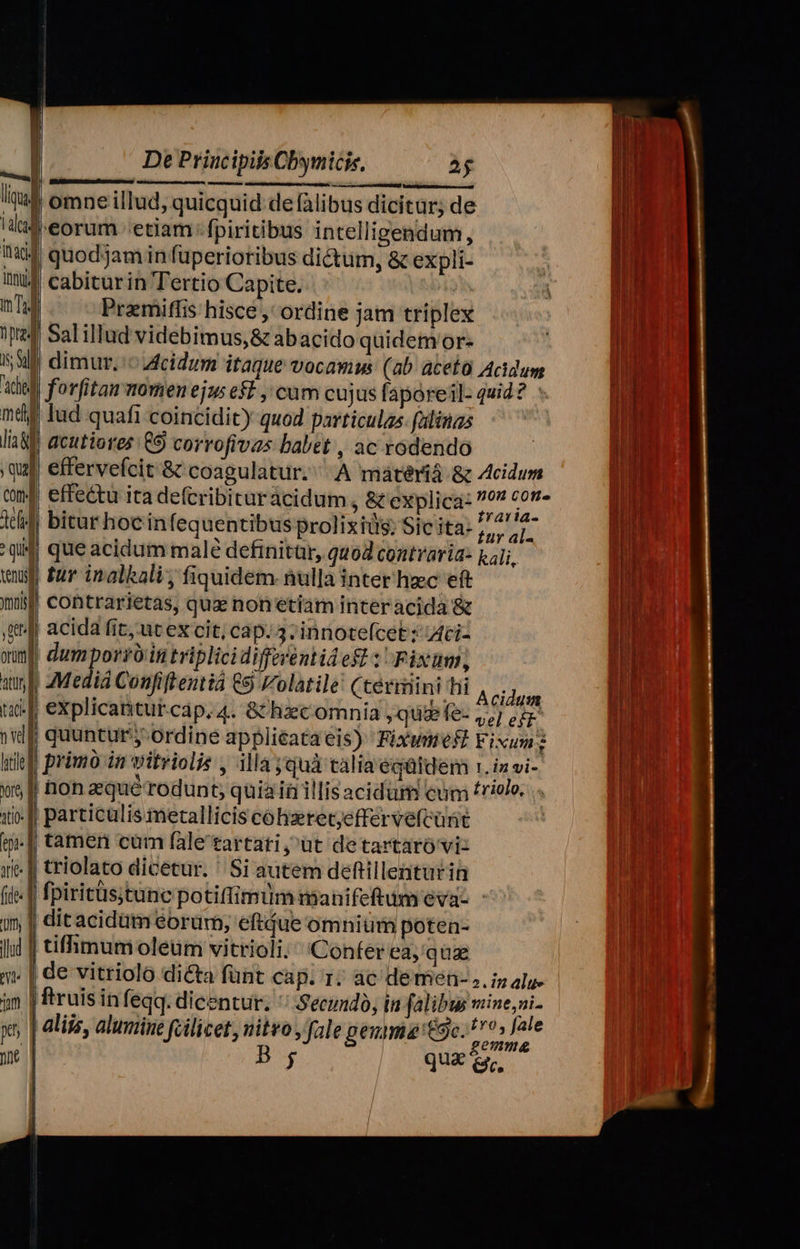 De Principiis Chymicis. 25
omne illud, quicquid de ſalibus dicitur; de
eorum etiam ſpiritibus intelligendum,
quod jam in ſuperioribus dictum, & expli-
cabitur in Tertio Capite.
Præmiſſis hisce, ordine jam triplex
Sal illud videbimus, & ab acido quidem or-
dimur. Acidum itaque vocamus (ab aceto Acidum
forſitan nomen ejus eſt, cum cujus ſapore il- quid?
lud quaſi coincidit) quod particulas ſalinas
acutiores & corroſivas habet, ac rodendo
efferveſcit & coagulatur. A materiâ & Acidum
effectu ita deſcribitur acidum, & explica- non con-
bitur hoc in ſequentibus prolixiùs. Sic ita- traria-
que acidum malè definitur, quod contraria- tur al-
tur in alkali, ſiquidem nulla inter hæc eſt kali,
contrarietas, quæ non etiam inter acida &
acida fit, ut ex cit. cap. 3. innoteſcet: Aci-
dum porrò in triplici differentiâ eſt: Fixum,
Mediâ Conſiſtentiâ & Volatile (termini hi
explicantur cap. 4. & hæc omnia, quæ ſe- Acidum
quuntur, ordine applicata eis) Fixum eſt vel eſt
primò in vitriolis, illa, quà talia equidem Fixum:
non æquè rodunt, quia in illis acidum cum 1. in vi-
particulis metallicis cohæret, efferveſcunt triolo.
tamen cum ſale tartari, ut de tartaro vi-
triolato dicetur. Si autem deſtillentur in
ſpiritùs, tunc potiſſimùm manifeſtum eva-
dit acidum eorum, eſtque omnium poten-
tiſſimum oleum vitrioli. Confer ea, quæ
de vitriolo dicta ſunt cap. 1. ac demen- 2. in alu-
ſtruis in ſeqq. dicentur. Secundò, in ſalibus mine, ni-
aliis, alumine ſcilicet, nitro, ſale gemmæ &c. tro, ſale
B 5 quæ gemmæ
&c.